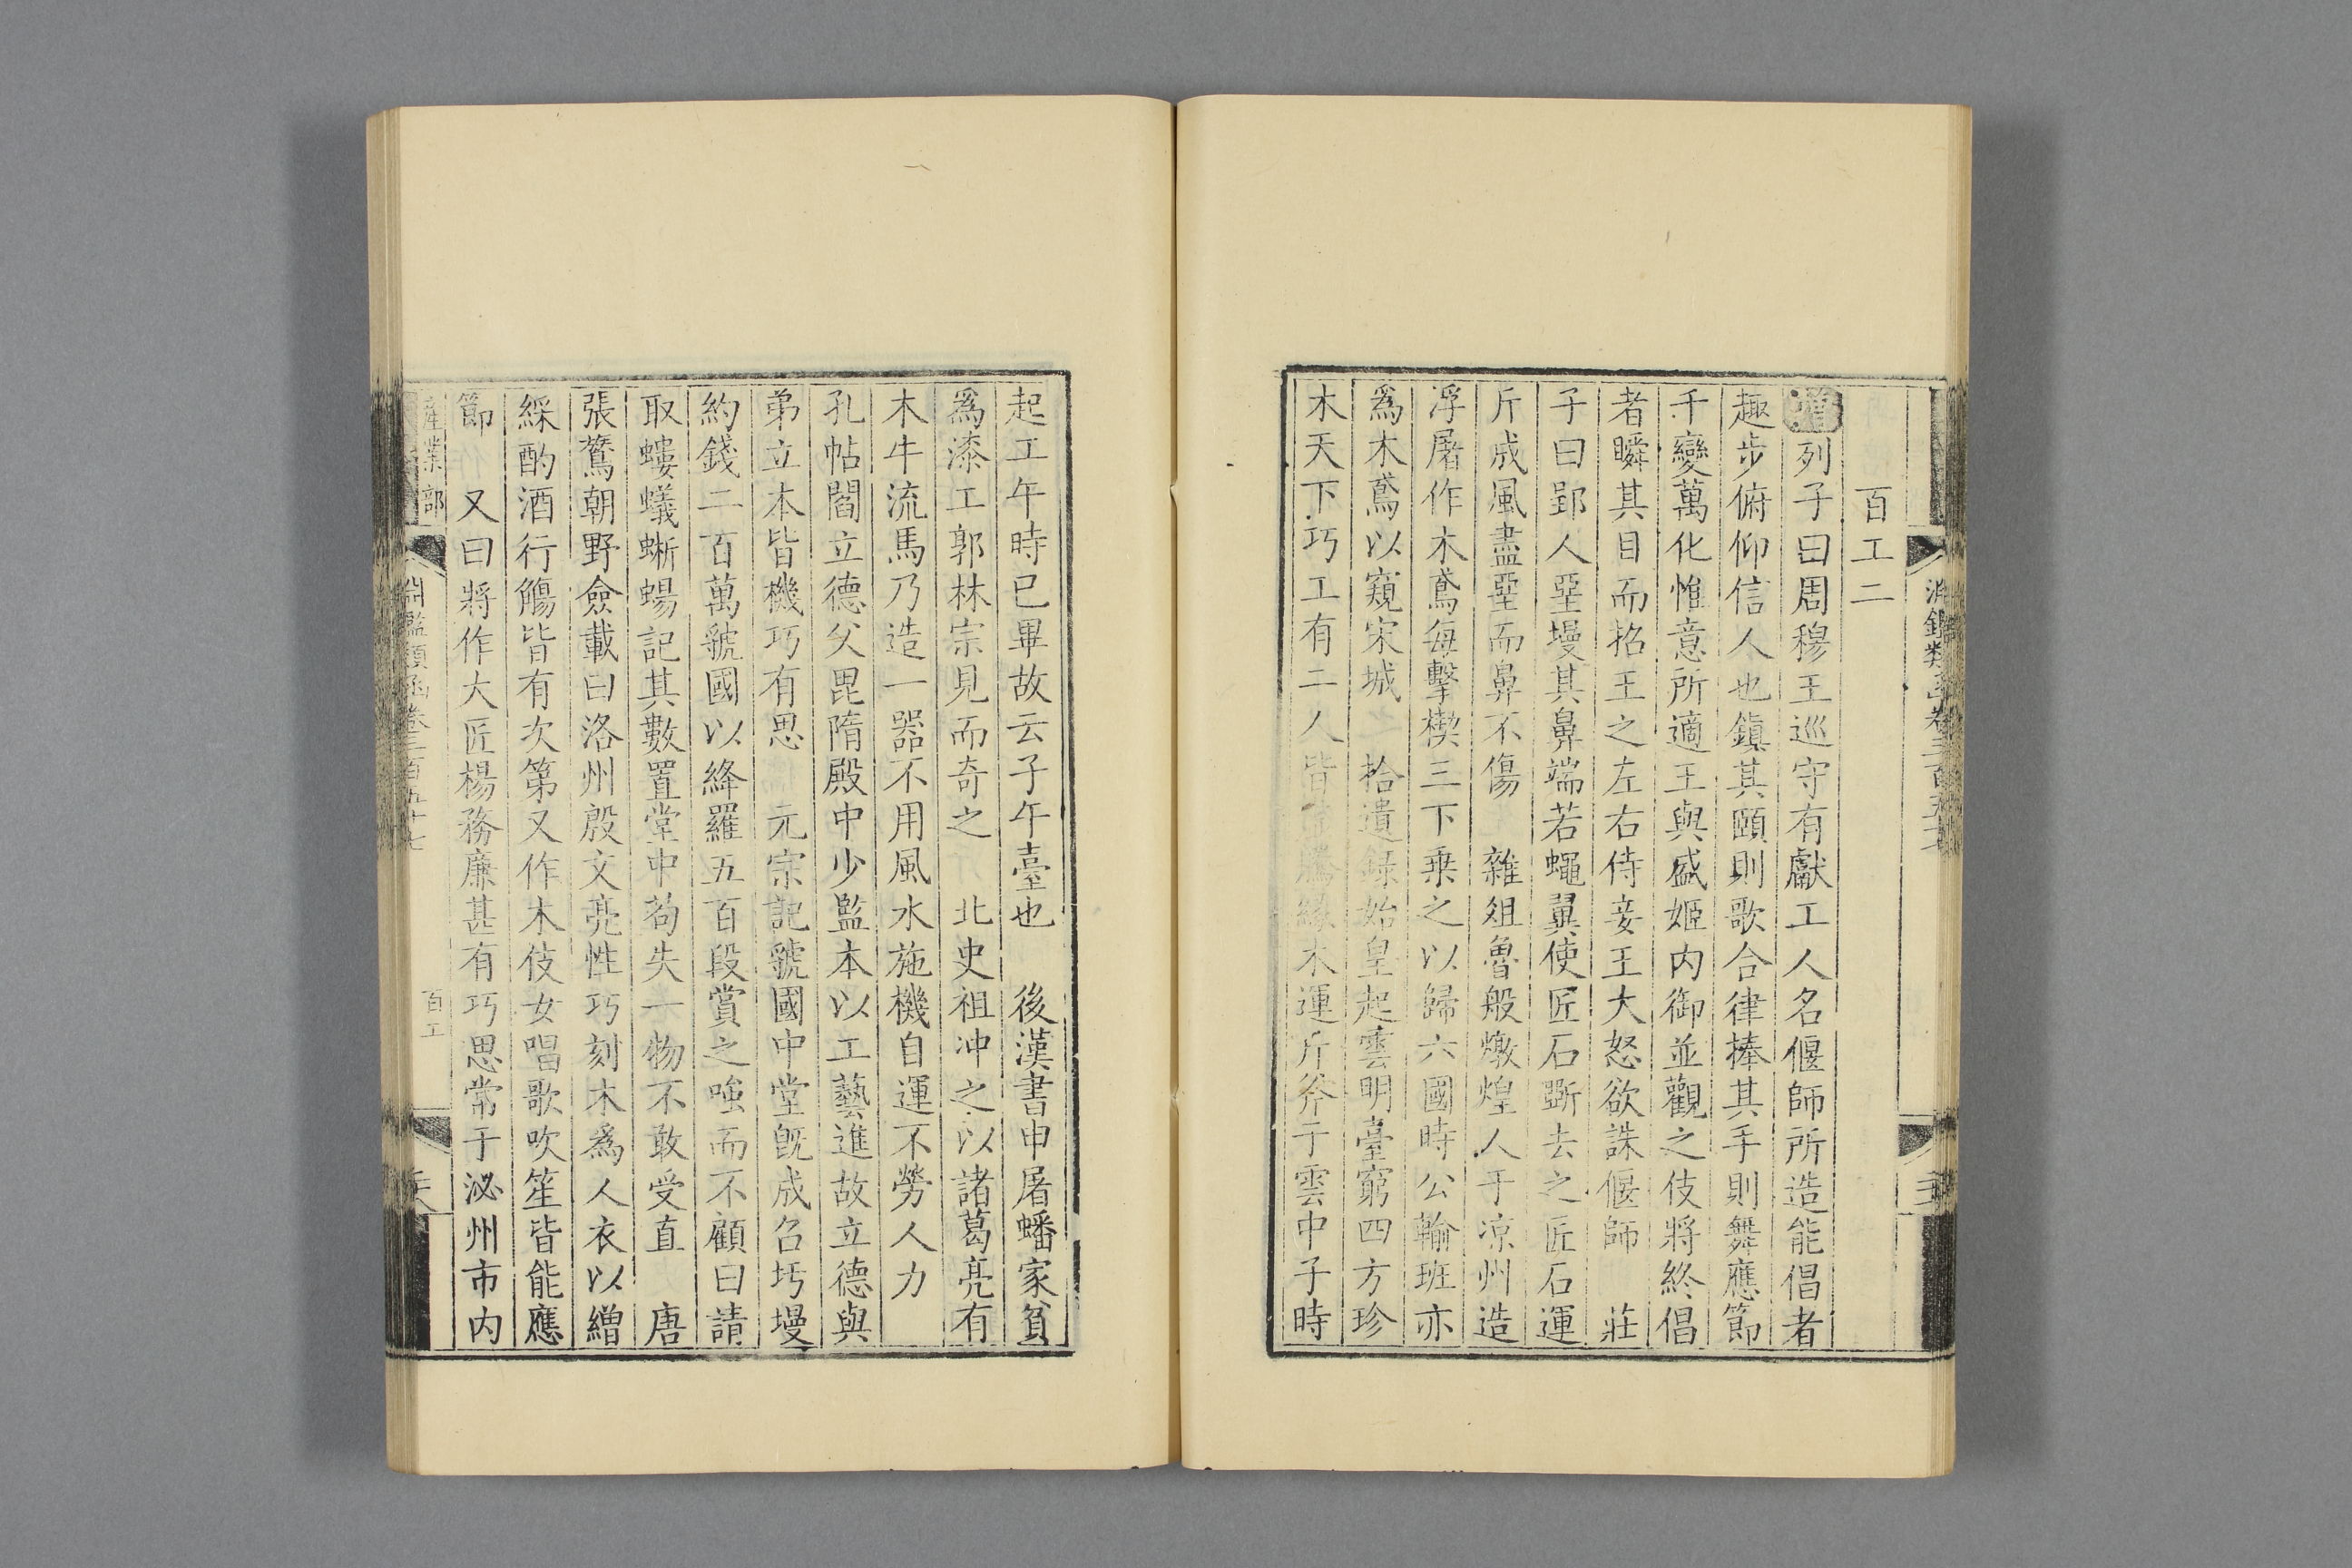 淵鑑類函卷三百五十七
百工二
增列子曰周穆王巡守有獻工人名偃師所造能倡者
趣步俯仰信人也鎮其頤則歌合律捧其手則舞應節
千變萬化惟意所適王與盛姬內御並觀之伎將終倡
者瞬其目而招王之左右侍妾王大怒欲誅偃師 莊
子曰郢人堊墁其鼻端若蠅翼使匠石斲去之匠石運
斤成風盡堊而鼻不傷 雜俎魯般燉煌人于凉州造
浮屠作木鳶每擊楔三下乗之以歸六國時公輸班亦
爲木鳶以窺宋城 拾遺錄始皇起雲明臺窮四方珍
木天下巧工有二人皆騰緣木運斤斧于雲中子時
起工午時已畢故云子午臺也 後漢書申屠蟠家貧
爲漆工郭林宗見而奇之 北史祖冲之以諸葛亮有
木牛流馬乃造一器不用風水施機自運不勞人力
孔帖閻立德父毘隋殿中少監本以工藝進故立德與
弟立本皆機巧有思 元宗記虢國中堂旣成召圬墁
約錢二百萬虢國以絳羅五百段賞之嗤而不顧曰請
取螻蟻蜥蜴記其數置堂中苟失一物不敢受直 唐
張鷟朝野僉載曰洛州殷文亮性巧刻木爲人衣以繒
綵酌酒行觴皆有次第又作木伎女唱歌吹笙皆能應
節 又曰將作大匠楊務廉甚有巧思常于泌州市內
產業部 淵鑑類函卷三百五十七 百工